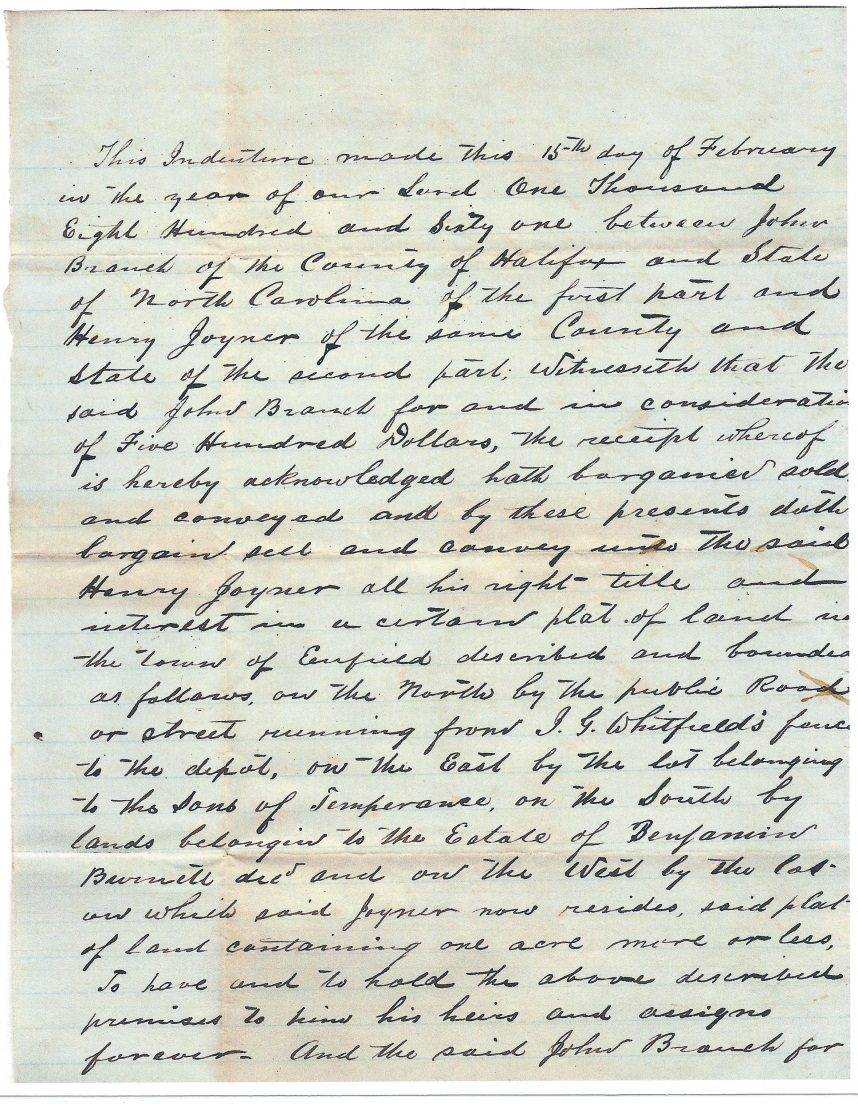 This Indenture made this 15th day of February
in the year of our Lord One Thousand
Eight Hundred and Sixty one between John
Branch of the County of Halifax and State
of North Carolina of the first part and
Henry Joyner of the same County and
State of the second part; Witnesseth that the
said John Branch for and in consideratio
of Five Hundred Dollars, the receipt whereof
is hereby acknowledged hath bargained sold
and conveyed and by these presents doth
bargain sell and convey unto the said
Henry Joyner all his right title and
interest in a certain plat of land in
the town of Enfield described and bounded
as follows, on the North by the public Road
or street running from J. G. Whitfield's fence
to the depot, on the East by the lot belonging
to the Sons of Temperance, on the South by
lands belongin to the Estate of Benjamin
Burnett decd and on the West by the lot
on which said Joyner now resides, said plat
of land containing one acre more or less,
To have and to hold the above described
premises to him his heirs and assigns
forever - And the said John Branch for